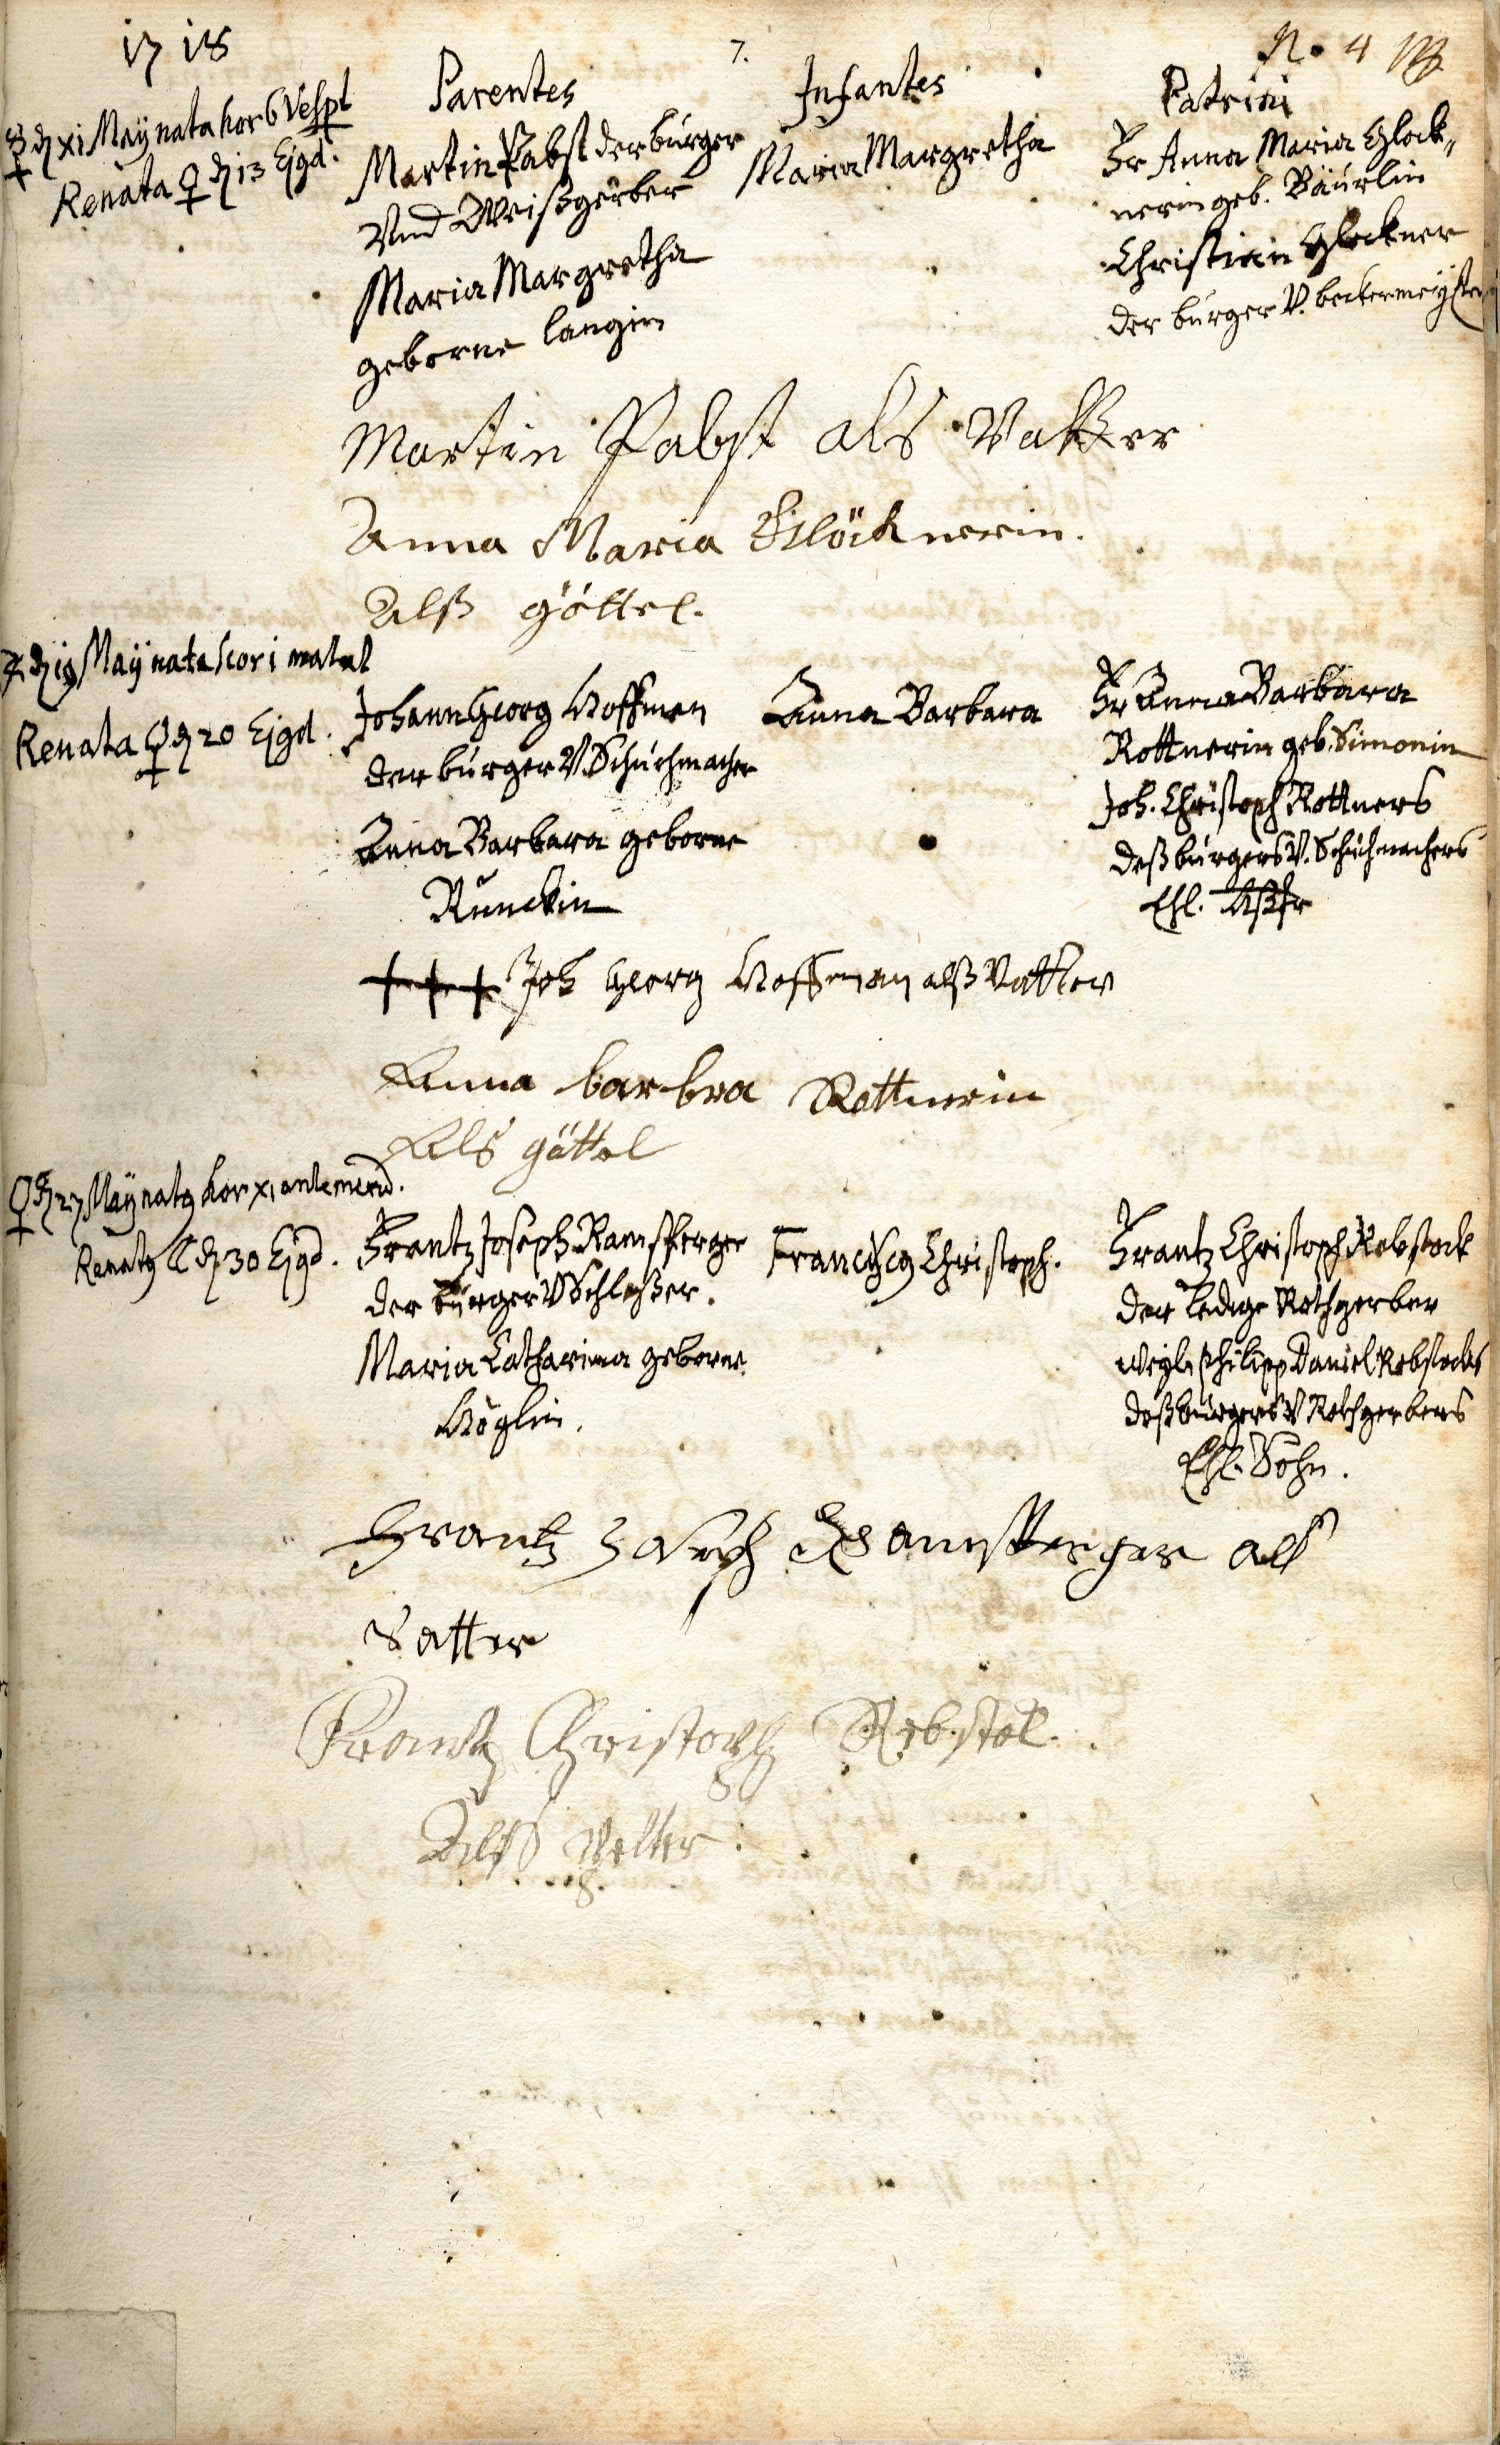 1718
7.
N. 4
Parentes
Infantes
Patrini
☿ d xi Maÿ nata hor 6 Vesp̄t
Renata ♀ d 13 Ejgd.
Martin Pabst der burger
Vnd Weißgerber
Maria Margretha
geborne Langin
Maria Margretha
Fr Anna Maria Glock„
nerin geb. Bäurlin
Christian Glockner
der burger V. beckermeÿster
Martin Pabst als Vatter
Anna Maria Glöcknerin.
Alß göttel.
d 19 Maÿ nata hor 1 matut
Renata ♀ d 20 Ejgd.
Johann Georg Hoffman
der burger V. Schuhmacher
Anna Barbara geborne
Runckin
Anna Barbara
Fr Anna Barbara
Rottnerin geb. Simonin
Joh. Christoph Rottners
deß burgers V. Schuhmachers
Ehl.
+++ Joh Georg Hoffman alß Vatter
Anna barbra Rottnerin
Als göttel
♀ d 27 Maÿ natg hor xi antemerid.
Renatg ☾ d 30 Ejgd.
Frantz Joseph Ramsperger
der burger V Schloßer.
Maria Catharina geborne
Höglin.
Franciscg Christoph.
Frantz Christoph Rebstock
der ledige Rothgerber
weyl. Philipp Daniel Rebstocks
deß burgers V Rothgerbers
Ehl. Sohn.
Frantz Joseph Ramsperger als
Vatter
Frantz Christoph Rebstok.
Alß Petter.